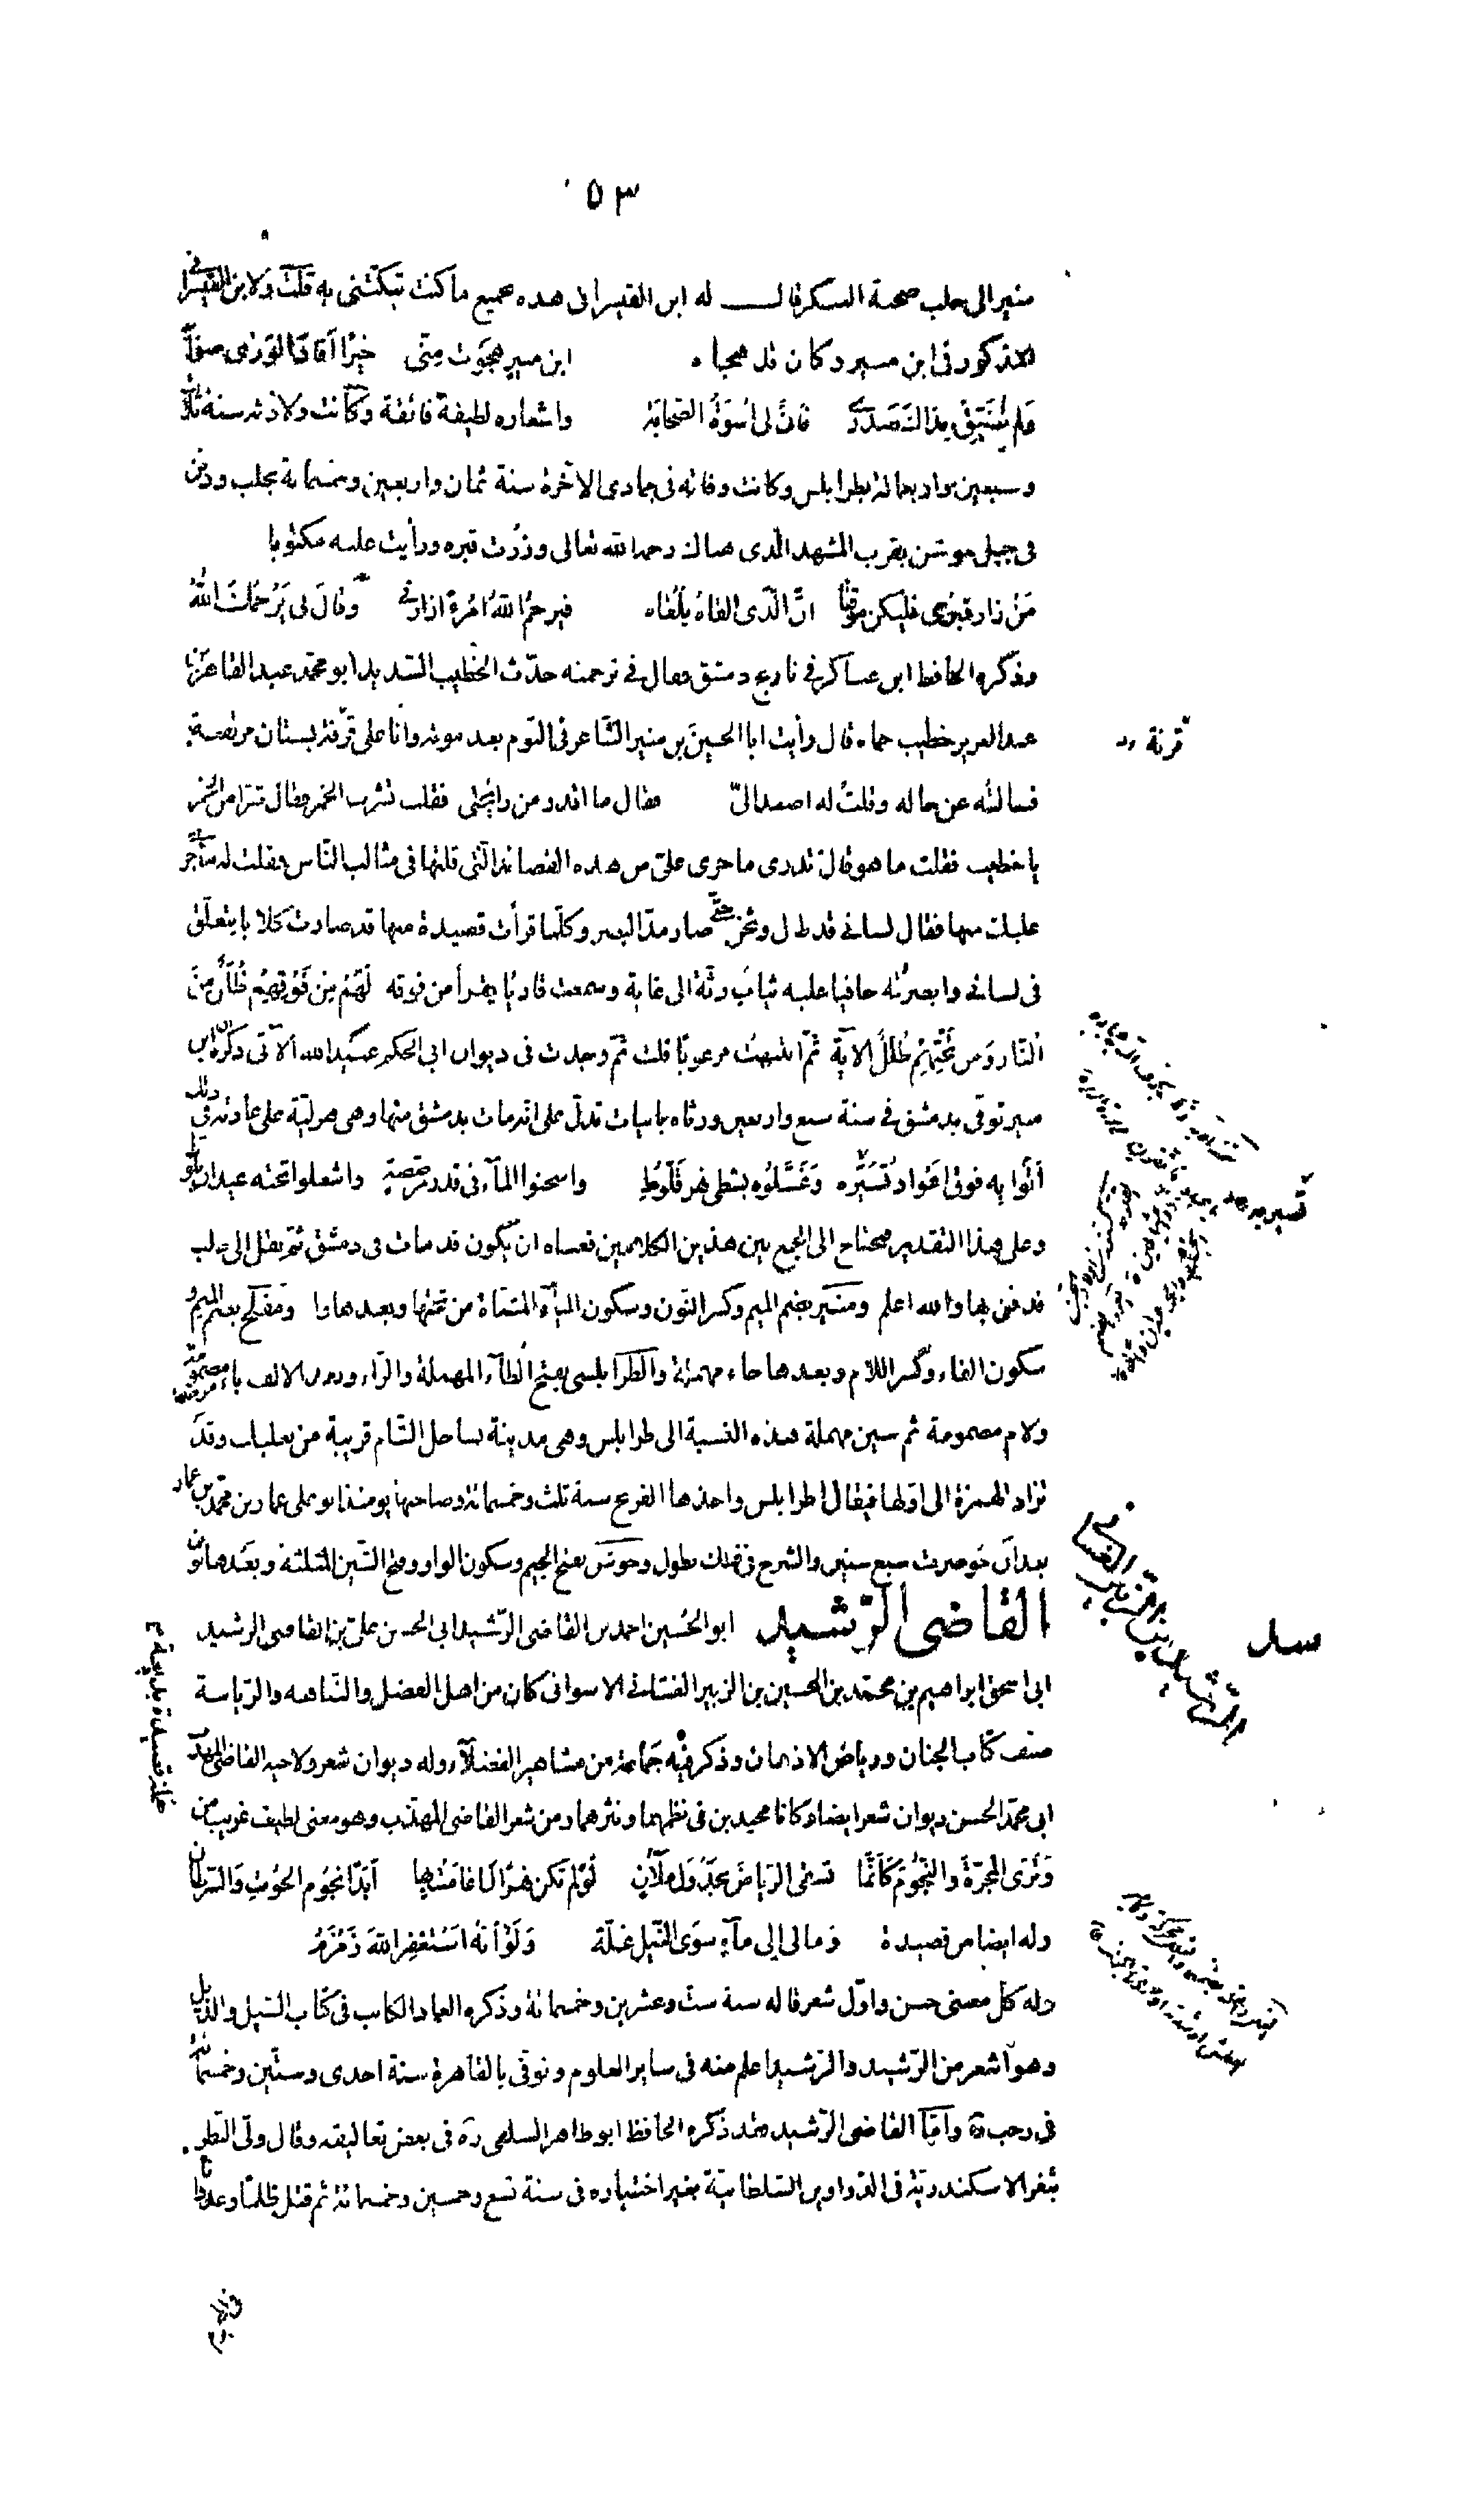 ٥٣
منير الى حلب صحبة العسكر قال له ابن القيسراني هذه بجميع ما كنت تبكتني به قلت ولابن القيسراني
المذكور في ابن منير وكان قد هجاه ابن منير هجوت مني خبرا أفاد الورى صوابه
ولم تضيق بذاك صدري فان لي اسوة الصحابة واشعاره لطيفة فائقة وكانت ولادته سنة ثلاث
وسبعين واربعمائة بطرابلس وكانت وفاته في جمادى الآخرة سنة ثمان واربعين وخمسمائة بحلب ودفن
في جبل جوشن بقرب المشهد الذي هناك رحمه الله تعالى وزرت قبره ورأيت عليه مكتوبا
من زار قبري فليكن موقنا ان الذي القاه يلقاه فيرحم الله امرءا زارني وقال لي يرحمك الله
وذكره الحافظ ابن عساكر في تاريخ دمشق فقال في ترجمته حدث الخطيب السديد ابو محمد عبد القاهر بن
عبد العزيز خطيب حماه قال رأيت ابا الحسين بن منير الشاعر في النوم بعد موته وانا على قرنة بستان مرتفعة
قرنة
فسالته عن حاله وقلت له اصعد الي فقال ما اقدر من رائحتي فقلت تشرب الخمر فقال شرا من الخمر
يا خطيب فقلت ما هو قال تدري ما جرى علي من هذه القصائد التي قلتها في مثالب الناس فقلت له ما جرى
عليك منها فقال لساني قد طال وثخن حتى صار مد البصر وكلما قرأت قصيدة منها قد صارت كلابا يتعلق
في لساني وابصرته حافيا عليه ثياب رثة الى غاية وسمعت قارئا يقرأ من فوقه لهم من فوقهم ظلل من
النار ومن تحتهم ظلل الآية ثم انتبهت مرعوبا قلت ثم وجدت في ديوان ابي الحكم عبيد الله الآتي ذكره ان ابن
منير توفي بدمشق في سنة سبع واربعين ورثاه بابيات تدل على انه مات بدمشق منها وهي هزلية على عادته في ذلك
أتوا به فوق أعواد تسيره وغسلوه بشطي نهر قلوط واسخنوا الماء في قدر مرصصة واشعلوا تحته عيدان بلوط
وعلى هذا التقدير محتاج الى الجمع بين هذين الكلامين فعساه ان يكون قد مات في دمشق ثم نقل الى حلب
فدفن بها والله اعلم ومنير بضم الميم وكسر النون وسكون الياء المثناة من تحتها وبعدها را ومفلح بضم الميم و
سكون الفاء وكسر اللام وبعدها حاء مهملة والطرابلسي بفتح الطاء المهملة والراء وبعد الالف باء موحدة مضمومة
ولام مضمومة ثم سين مهملة هذه النسبة الى طرابلس وهي مدينة بساحل الشام قريبة من بعلبك وقد
تزاد الهمزة الى اولها فيقال اطرابلس واخذها الفرنج سنة ثلث وخمسمائة وصاحبها يومئذ ابو علي عمار بن محمد بن عمار
بعد ان حوصرت سبع سنين والشرح في ذلك يطول وجوشن بفتح الجيم وسكون الواو وفتح الشين المثلثة وبعدها نون
القاضي الرشيد ابو الحسين احمد بن القاضي الرشيد ابي الحسن علي بن القاضي الرشيد
ابي اسحق ابراهيم بن محمد بن الحسين بن الزبير الغساني الاسواني كان من اهل الفضل والنباهة والرياسة
صنف كتاب الجنان ورياض الاذهان وذكر فيه جماعة من مشاهير الفضلاء وله ديوان شعر ولاخيه القاضي المهذب
ابي محمد الحسن ديوان شعر ايضا وكانا مجيدين في نظمهما ونثرهما ومن شعر القاضي المهذب وهو معنى لطيف غريب من
وترى المجرة والنجوم كأنما تسقي الرياض بجدول ملآن لو لم تكن نهرا لما عامت بها ابدا نجوم الحوت والسرطان
وله ايضا من قصيدة وما لي الى ماء سوى النيل غلة ولو انه استغفر الله زمزم
وله كل معنى حسن واول شعر قاله سنة ست وعشرين وخمسمائة وذكره العماد الكاتب في كتاب السيل والذيل
وهو اشعر من الرشيد والرشيد اعلم منه في ساير العلوم وتوفي بالقاهرة سنة احدى وستين وخمسمائة
في رجب ره واما القاضي الرشيد فقد ذكره الحافظ ابو طاهر السلفي ره في بعض تعاليقه وقال ولي النظر
بثغر الاسكندرية في الدواوين السلطانية بغير اختياره في سنة تسع وخمسين وخمسمائة ثم قتل ظلما وعدوانا